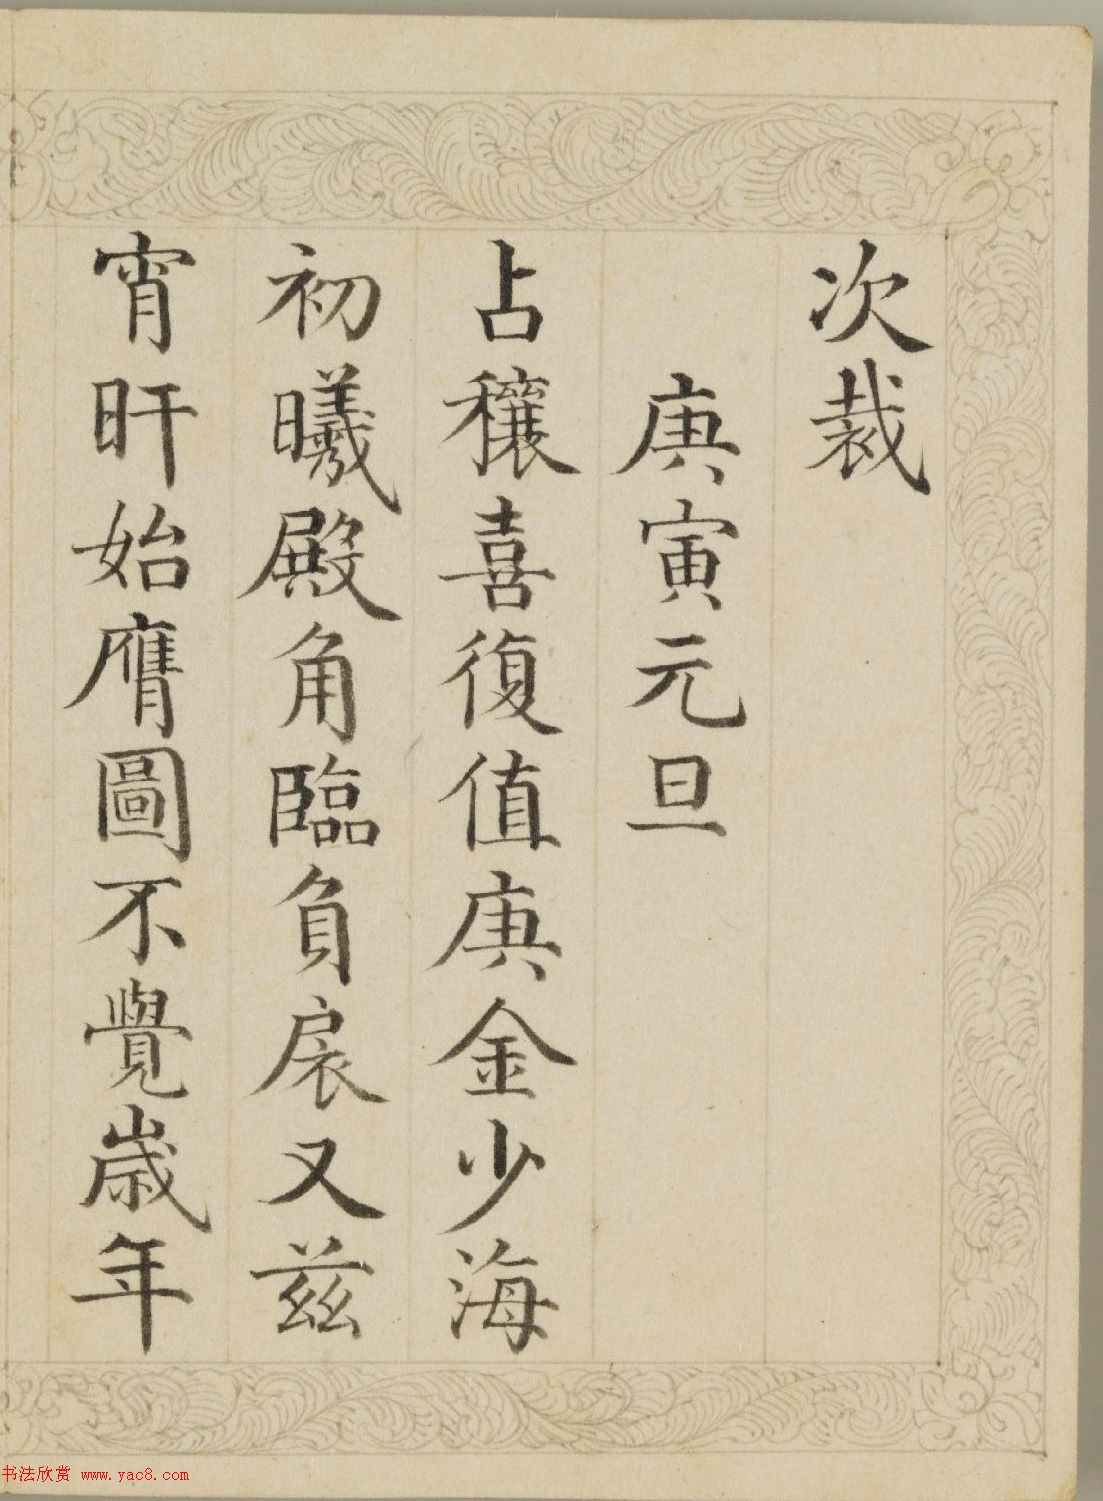 次裁
庚寅元旦
占穰喜復值庚金少海
初曦殿角臨負扆又茲
宵旰始膺圖不覺歲年
书法欣赏 www.yac8.com